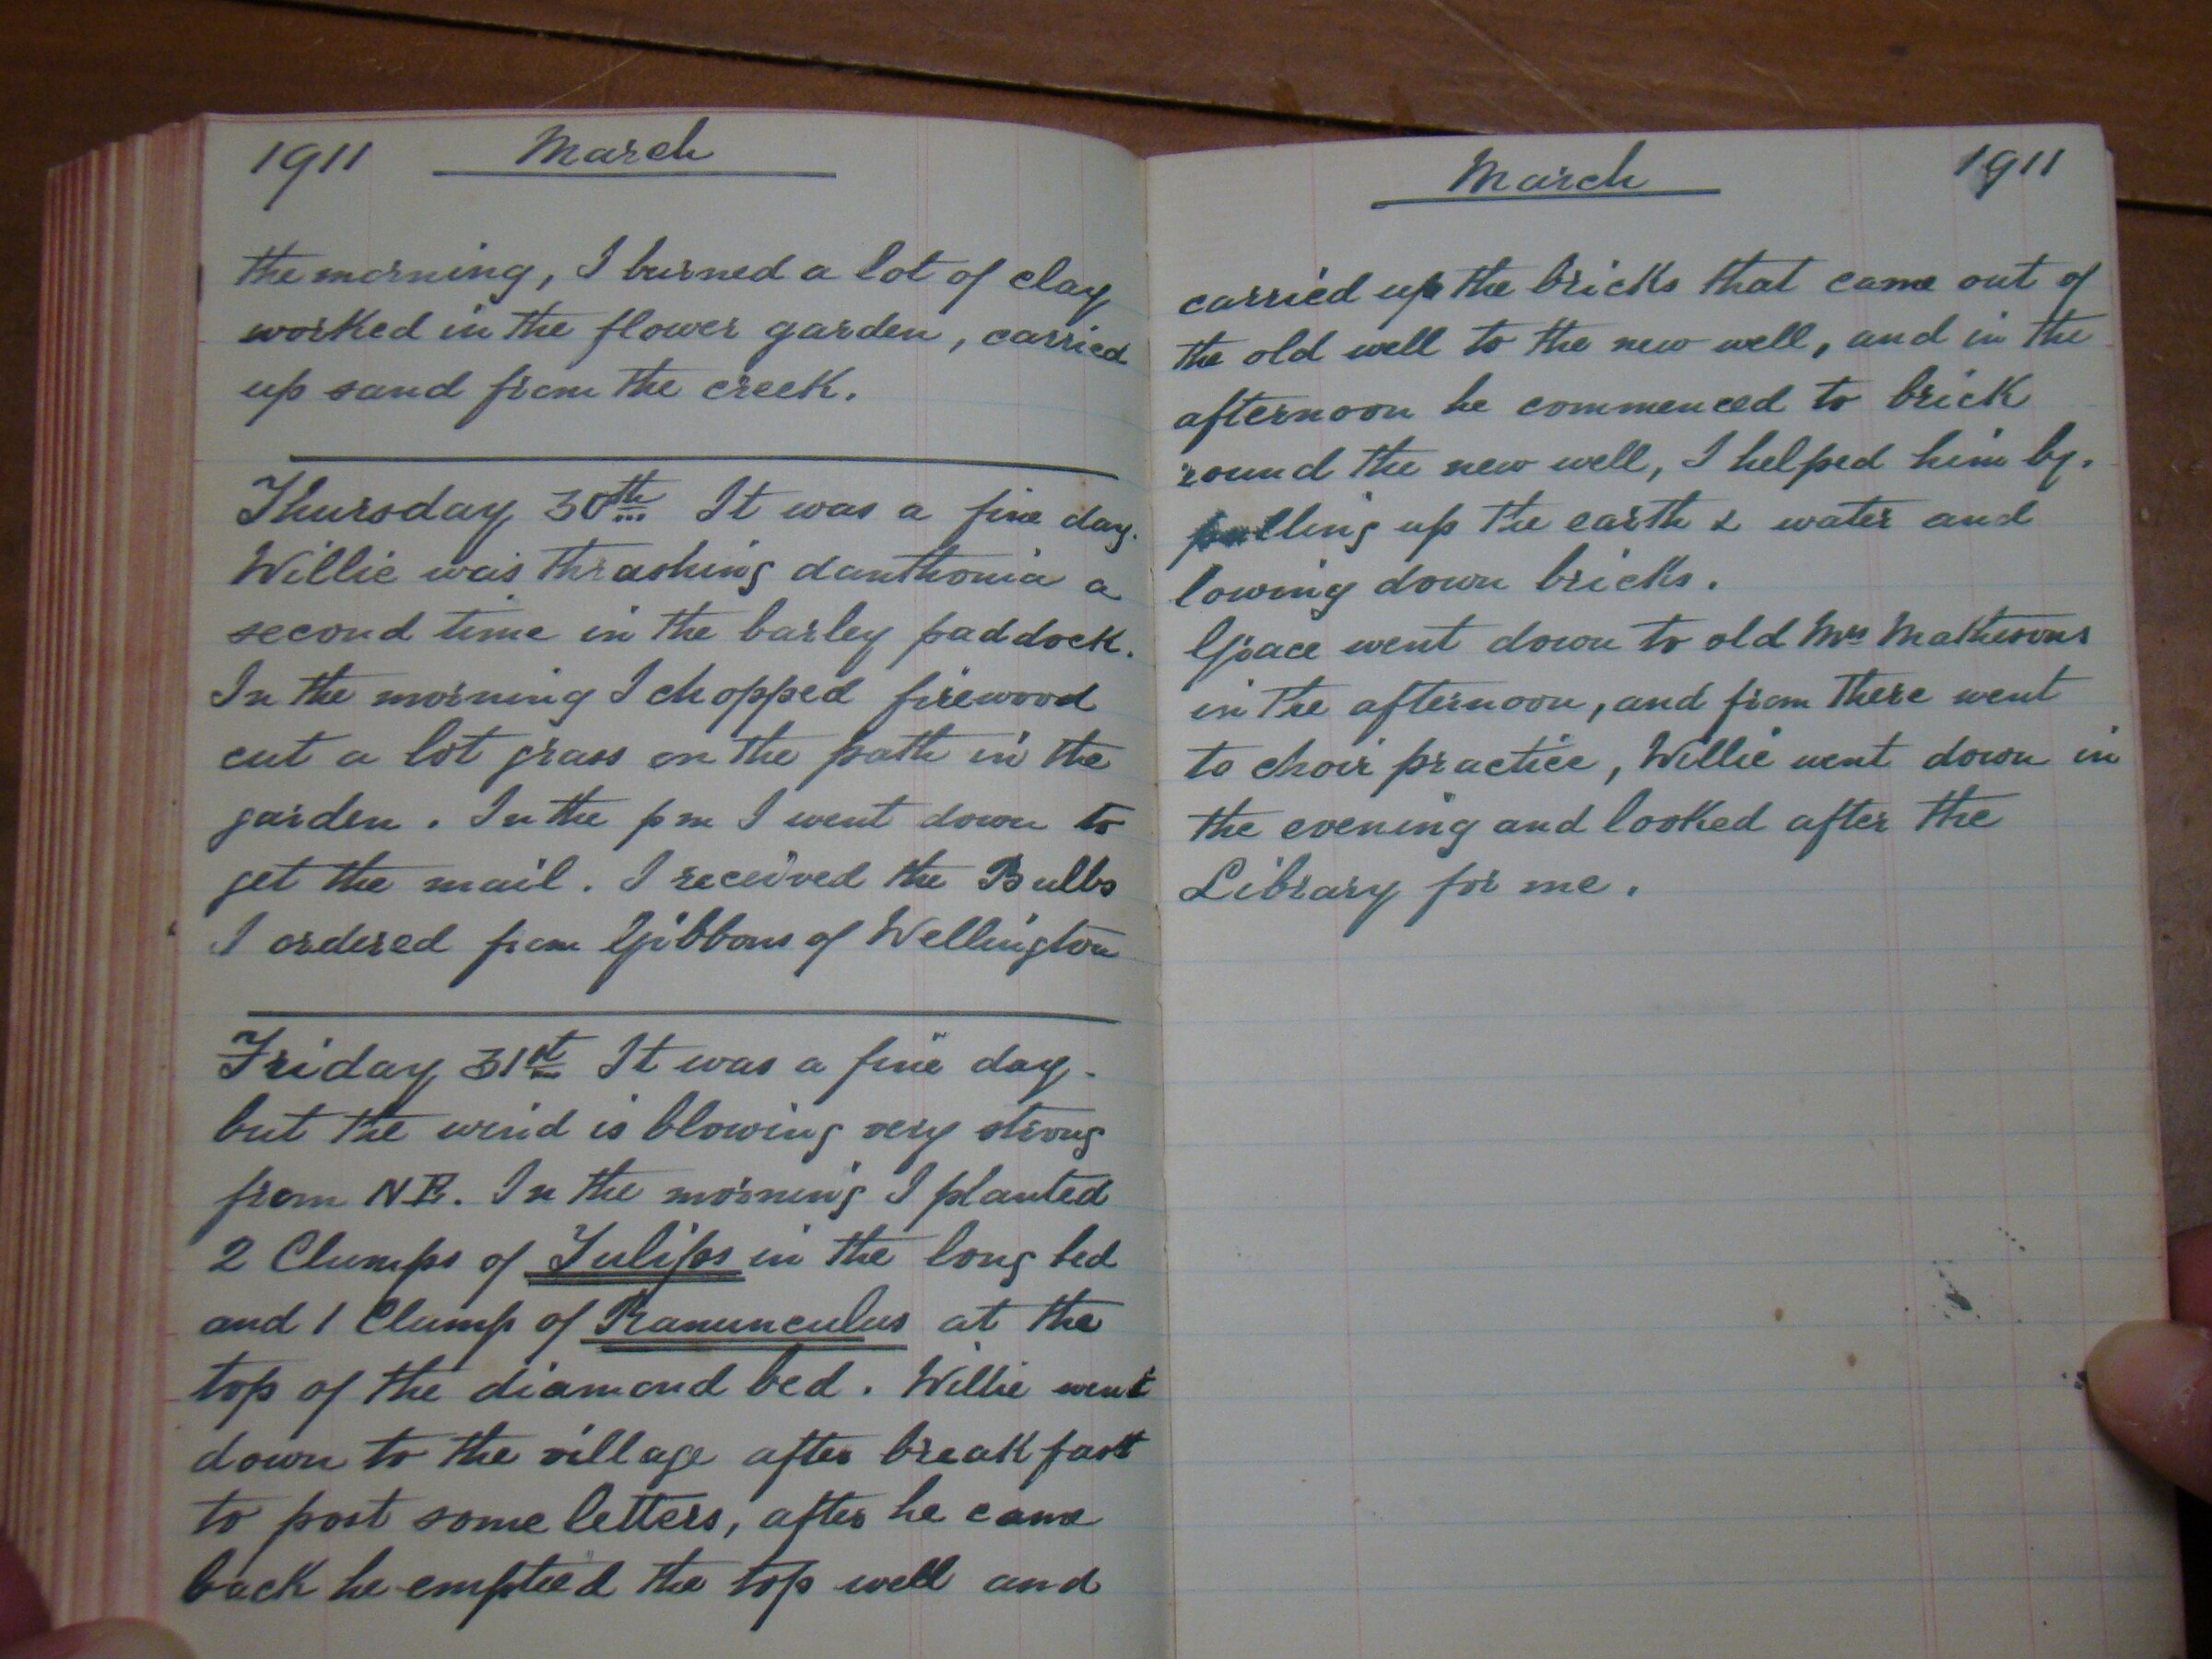 1911 March
the morning, I burned a lot of clay
worked in the flower garden, carried
up sand from the creek.
Thursday 30th It was a fine day.
Willie was thrashing danthonia a
second time in the barley paddock.
In the morning I chopped firewood
cut a lot grass on the path in the
garden. In the pm I went down to
get the mail. I received the Bulbs
I ordered from Gibbons of Wellington
Friday 31st It was a fine day.
but the wind is blowing very strong
from NE. In the morning I planted
2 Clumps of Tulips in the long bed
and 1 Clump of Ranunculus at the
top of the diamond bed. Willie went
down to the village after breakfast
to post some letters, after he came
back he emptied the top well and
March 1911
carried up the bricks that came out of
the old well to the new well, and in the
afternoon he commenced to brick
round the new well, I helped him by.
pulling up the earth & water and
lowing down bricks.
Grace went down to old Mrs Mathesons
in the afternoon, and from there went
to choir practice, Willie went down in
the evening and looked after the
Library for me.